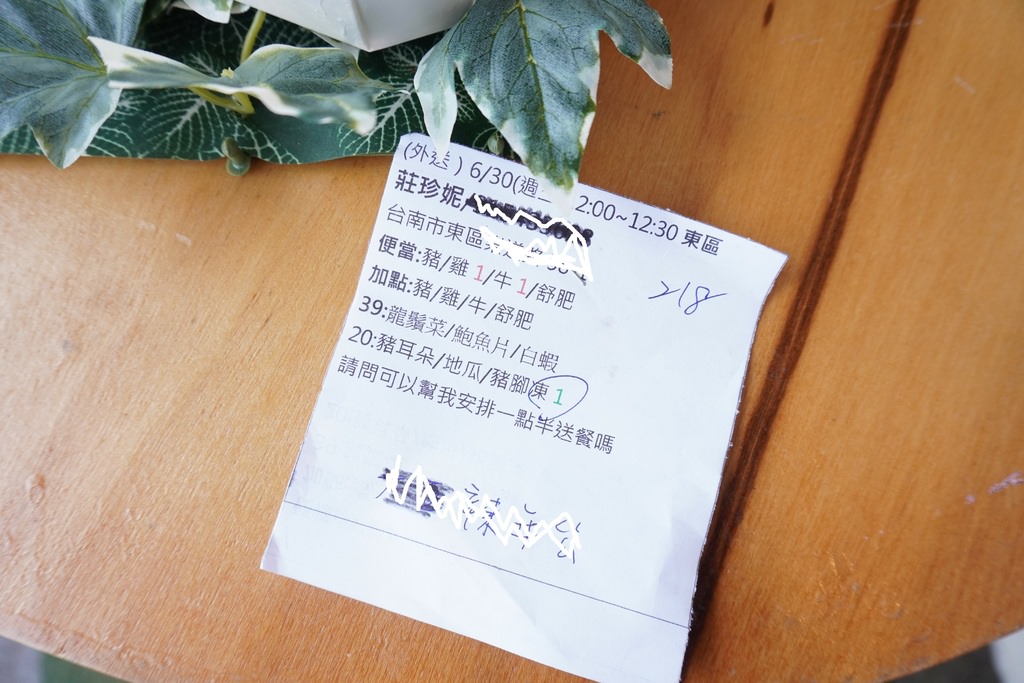 (外送) 6/30(週 2:00~12:30 東區
莊珍妮/
台南市東區
便當:豬/雞 1/牛 1/舒肥
218
加點:豬/雞/牛/舒肥
39:龍鬚菜/鮑魚片/白蝦
20:豬耳朵/地瓜/豬腳凍 1
請問可以幫我安排一點半送餐嗎